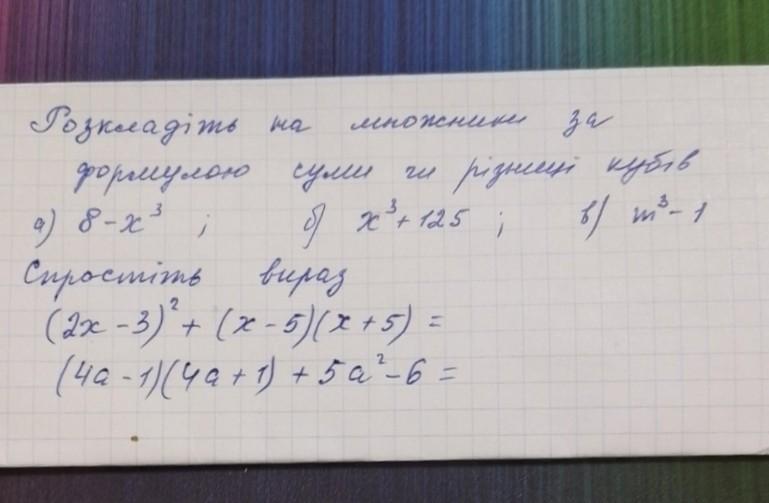 Розкладіть на множники за
формулою суми чи різниці кубів
а) 8-x³ ; б) x³+125 ; в) m³-1
Спростіть вираз
(2x-3)²+(x-5)(x+5)=
(4a-1)(4a+1)+5a²-6=